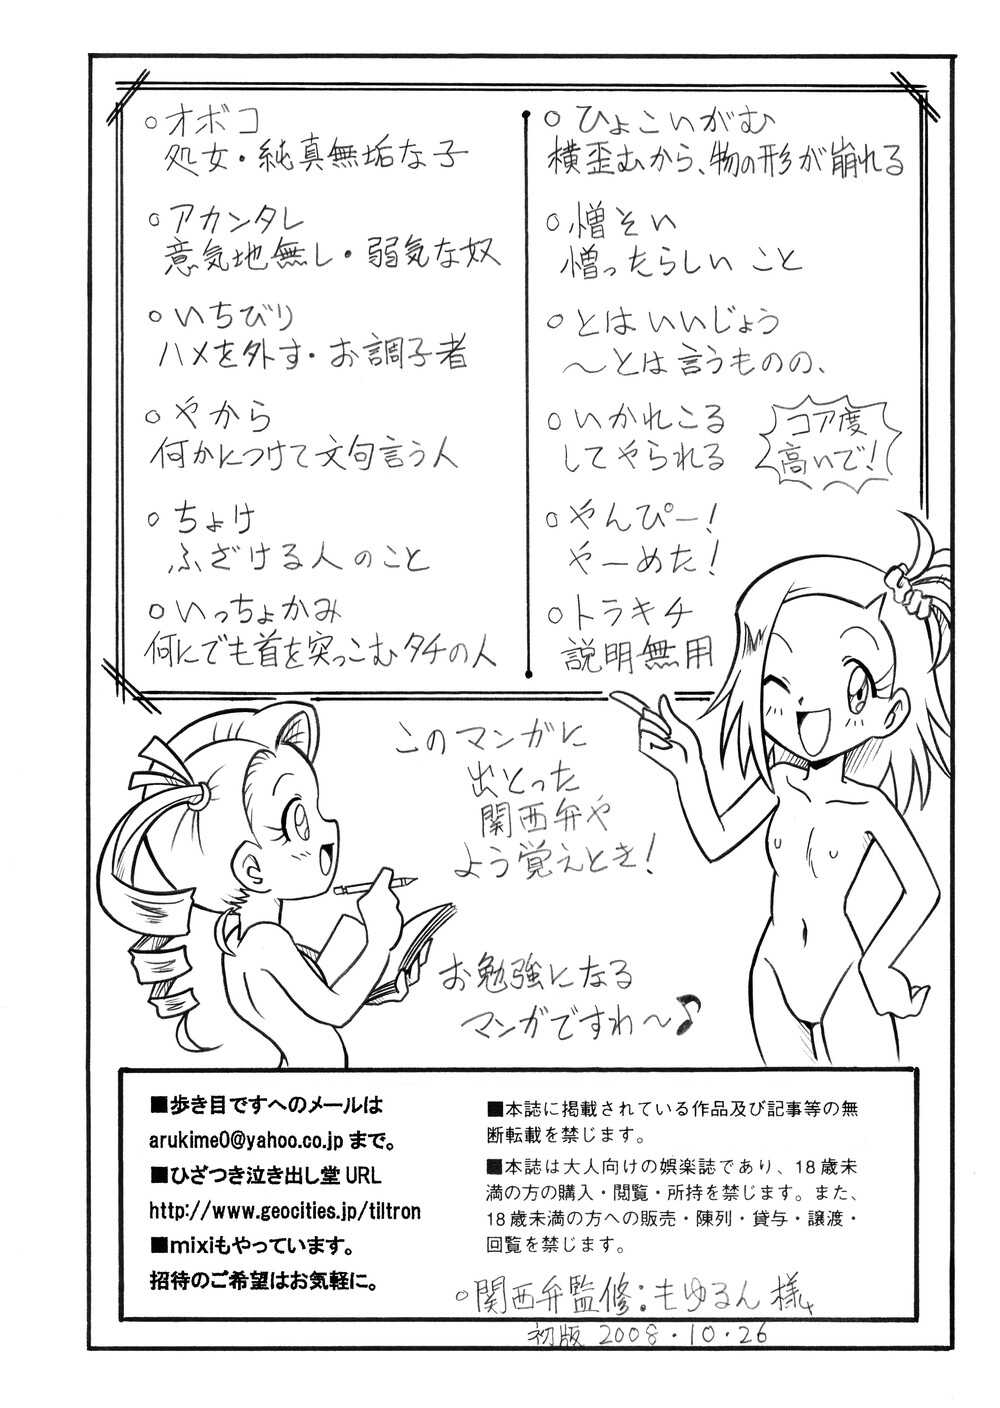 ○オボコ
処女・純真無垢な子
○アカンタレ
意気地無し・弱気な奴
○いちびり
ハメを外す・お調子者
○やから
何かにつけて文句言う人
○ちょけ
ふざける人のこと
○いっちょかみ
何にでも首を突っこむタチの人
○ひょこいがむ
横歪むから、物の形が崩れる
○憎そい
憎ったらしいこと
○とはいいじょう
〜とは言うものの、
○いかれこる
してやられる
コア度
高いで!
○やんぴー!
やーめた!
○トラキチ
説明無用
このマンガに
出とった
関西弁や
よう覚えとき!
お勉強になる
マンガですわ〜♪
■歩き目ですへのメールは
arukime0@yahoo.co.jp まで。
■ひざつき泣き出し堂 URL
http://www.geocities.jp/tiltron
■mixiもやっています。
招待のご希望はお気軽に。
■本誌に掲載されている作品及び記事等の無
断転載を禁じます。
■本誌は大人向けの娯楽誌であり、18歳未
満の方の購入・閲覧・所持を禁じます。また、
18歳未満の方への販売・陳列・貸与・譲渡・
回覧を禁じます。
○関西弁監修:もゆるん様
初版 2008・10・26